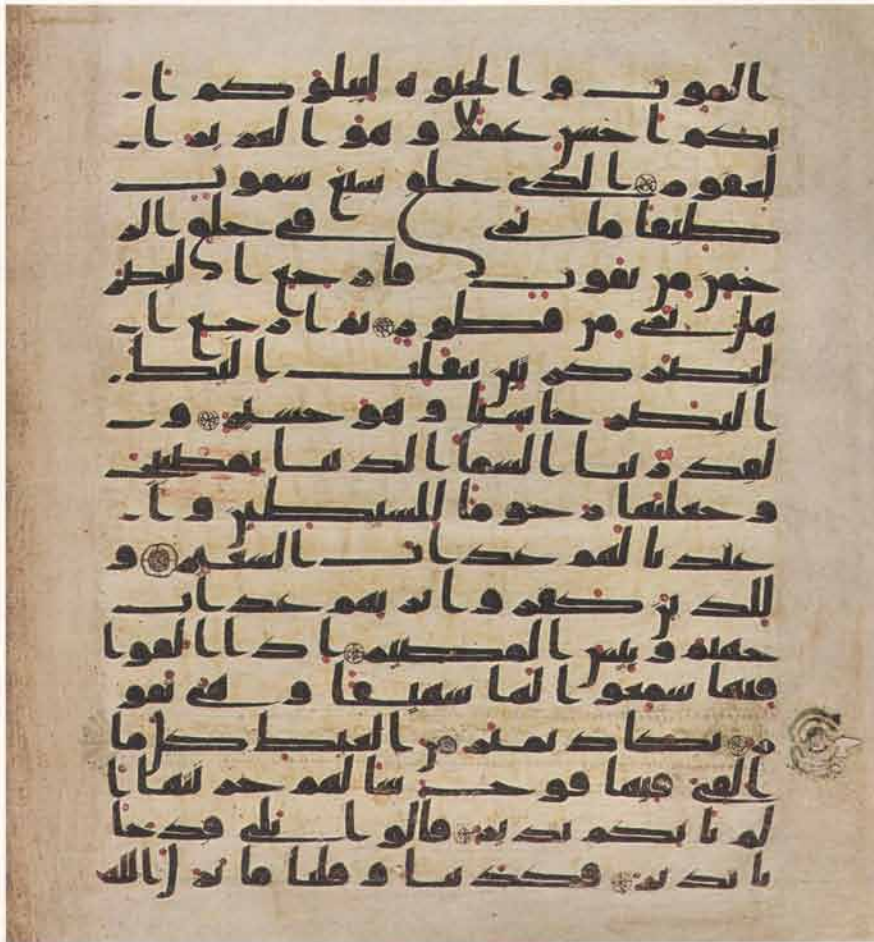 الموت والحيوة ليبلوكم ا
يكم احسن عملا وهو العزيز ا
لغفور الذي خلق سبع سموت
طبقا ما ترى في خلق الر
حمن من تفوت فارجع البصر
هل ترى من فطور ثم ارجع ا
لبصر كرتين ينقلب اليك
البصر خاسئا وهو حسير و
لقد زينا السما الدنيا بمصبيح
وجعلنها رجوما للشيطين وا
عتدنا لهم عذاب السعير و
للذين كفروا بربهم عذاب
جهنم وبئس المصير اذا القوا
فيها سمعوا لها شهيقا وهي تفو
ر تكاد تميز من الغيظ كلما
القي فيها فوج سالهم خزنتها ا
لم ياتكم نذير قالوا بلى قد جا
نا نذير فكذبنا وقلنا ما نزل الله